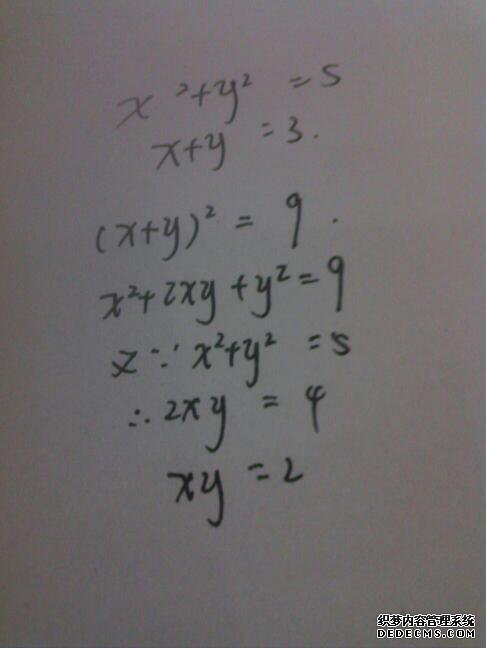 x²+y² =5
x+y =3.
(x+y)² = 9.
x²+2xy+y²=9
又∵x²+y² =5
∴2xy = 4
xy =2
织梦内容管理系统
DEDECMS.COM